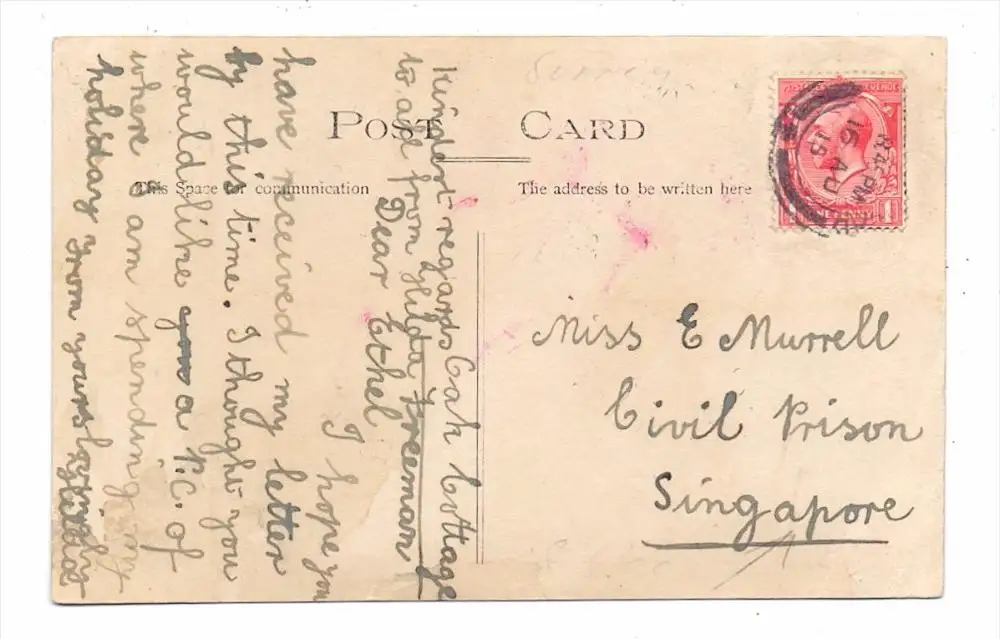 POST CARD
This Space for communication
The address to be written here
Surrey
POSTAGE REVENUE
ONE PENNY
1
PM
16 AU
15
Kindest regards Oak Cottage
to all from Hilda Freeman
Dear Ethel
I hope you
have received my letter
by this time. I thought you
would like a P.C. of
where I am spending my
holiday from yours lovingly
Hilda
Miss E Murrell
Civil Prison
Singapore